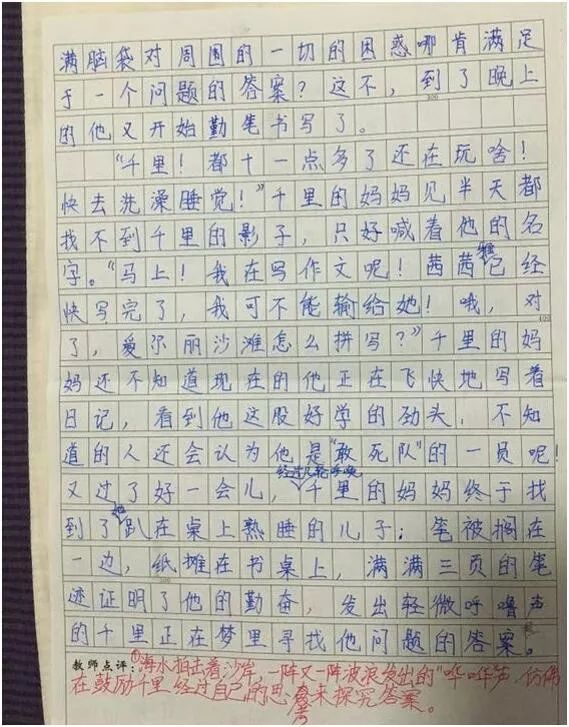 满脑袋对周围的一切的困惑哪肯满足
于一个问题的答案？这不，到了晚上
困他又开始勤笔书写了。
“千里！都十一点多了还在玩啥！
快去洗澡睡觉！”千里的妈妈见半天都
找不到千里的影子，只好喊着他的名
字。“马上！我在写作文呢！茜茜她已经
快写完了，我可不能输给她！哦，对
了，爱尔丽沙滩怎么拼写？”千里的妈
妈还不知道现在的他正在飞快地写着
日记，看到他这股好学的劲头，不知
道的人还会认为他是“敢死队”的一员呢！
经过几轮呼唤
又过了好一会儿，千里的妈妈终于找
到了她趴在桌上熟睡的儿子；笔被搁在
一边，纸摊在书桌上，满满三页的笔
迹证明了他的勤奋，发出轻微呼噜声
的千里正在梦里寻找他问题的答案。
教师点评：①海水拍击着沙岸，一阵又一阵波浪发出的“哗哗”声，仿佛
在鼓励千里经过自己的思考来探究答案。